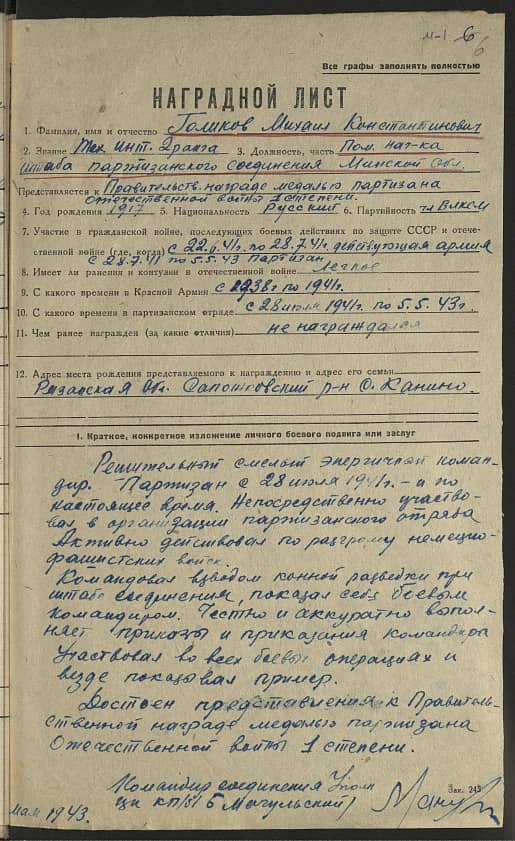 М-1 6
6
Все графы заполнять полностью
НАГРАДНОЙ ЛИСТ
1. Фамилия, имя и отчество Голиков Михаил Константинович
2. Звание Тех. инт. 2 ранга 3. Должность, часть Пом. нач-ка
штаба партизанского соединения Минской Обл.
Представляется к Правительств. награде медалью партизана
отечественной войны 1 степени.
4. Год рождения 1917 5. Национальность Русский 6. Партийность чл ВЛКСМ
7. Участие в гражданской войне, последующих боевых действиях по защите СССР и отече-
ственной войне (где, когда) с 22.6.41г. по 28.7.41г. действующая армия
с 28.7.41 по 5.5.43 партизан
8. Имеет ли ранения и контузии в отечественной войне Легкое
9. С какого времени в Красной Армии с 1938г по 1941г.
10. С какого времени в партизанском отряде с 28 июля 1941г. по 5.5.43г.
11. Чем ранее награжден (за какие отличия) не награждался
12. Адрес места рождения представляемого к награждению и адрес его семьи
Рязанская Обл. Сапожковский р-н с. Канино.
I. Краткое, конкретное изложение личного боевого подвига или заслуг
Решительный смелый энергичный коман-
дир. Партизан с 28 июля 1941г. – и по
настоящее время. Непосредственно участво-
вал в организации партизанского отряда
Активно действовал по разгрому немецко-
фашистских войск.
Командовал взводом конной разведки при
штабе соединения, показал себя боевым
командиром. Честно и аккуратно выпол-
няет приказы и приказания командира
Участвовал во всех боевых операциях и
везде показывал пример.
Достоен представления к Правитель-
ственной награде медалью партизана
Отечественной войны 1 степени.
Командир соединения Упол
цк кп(б)Б Мачульский
Зак. 243
мая 1943.